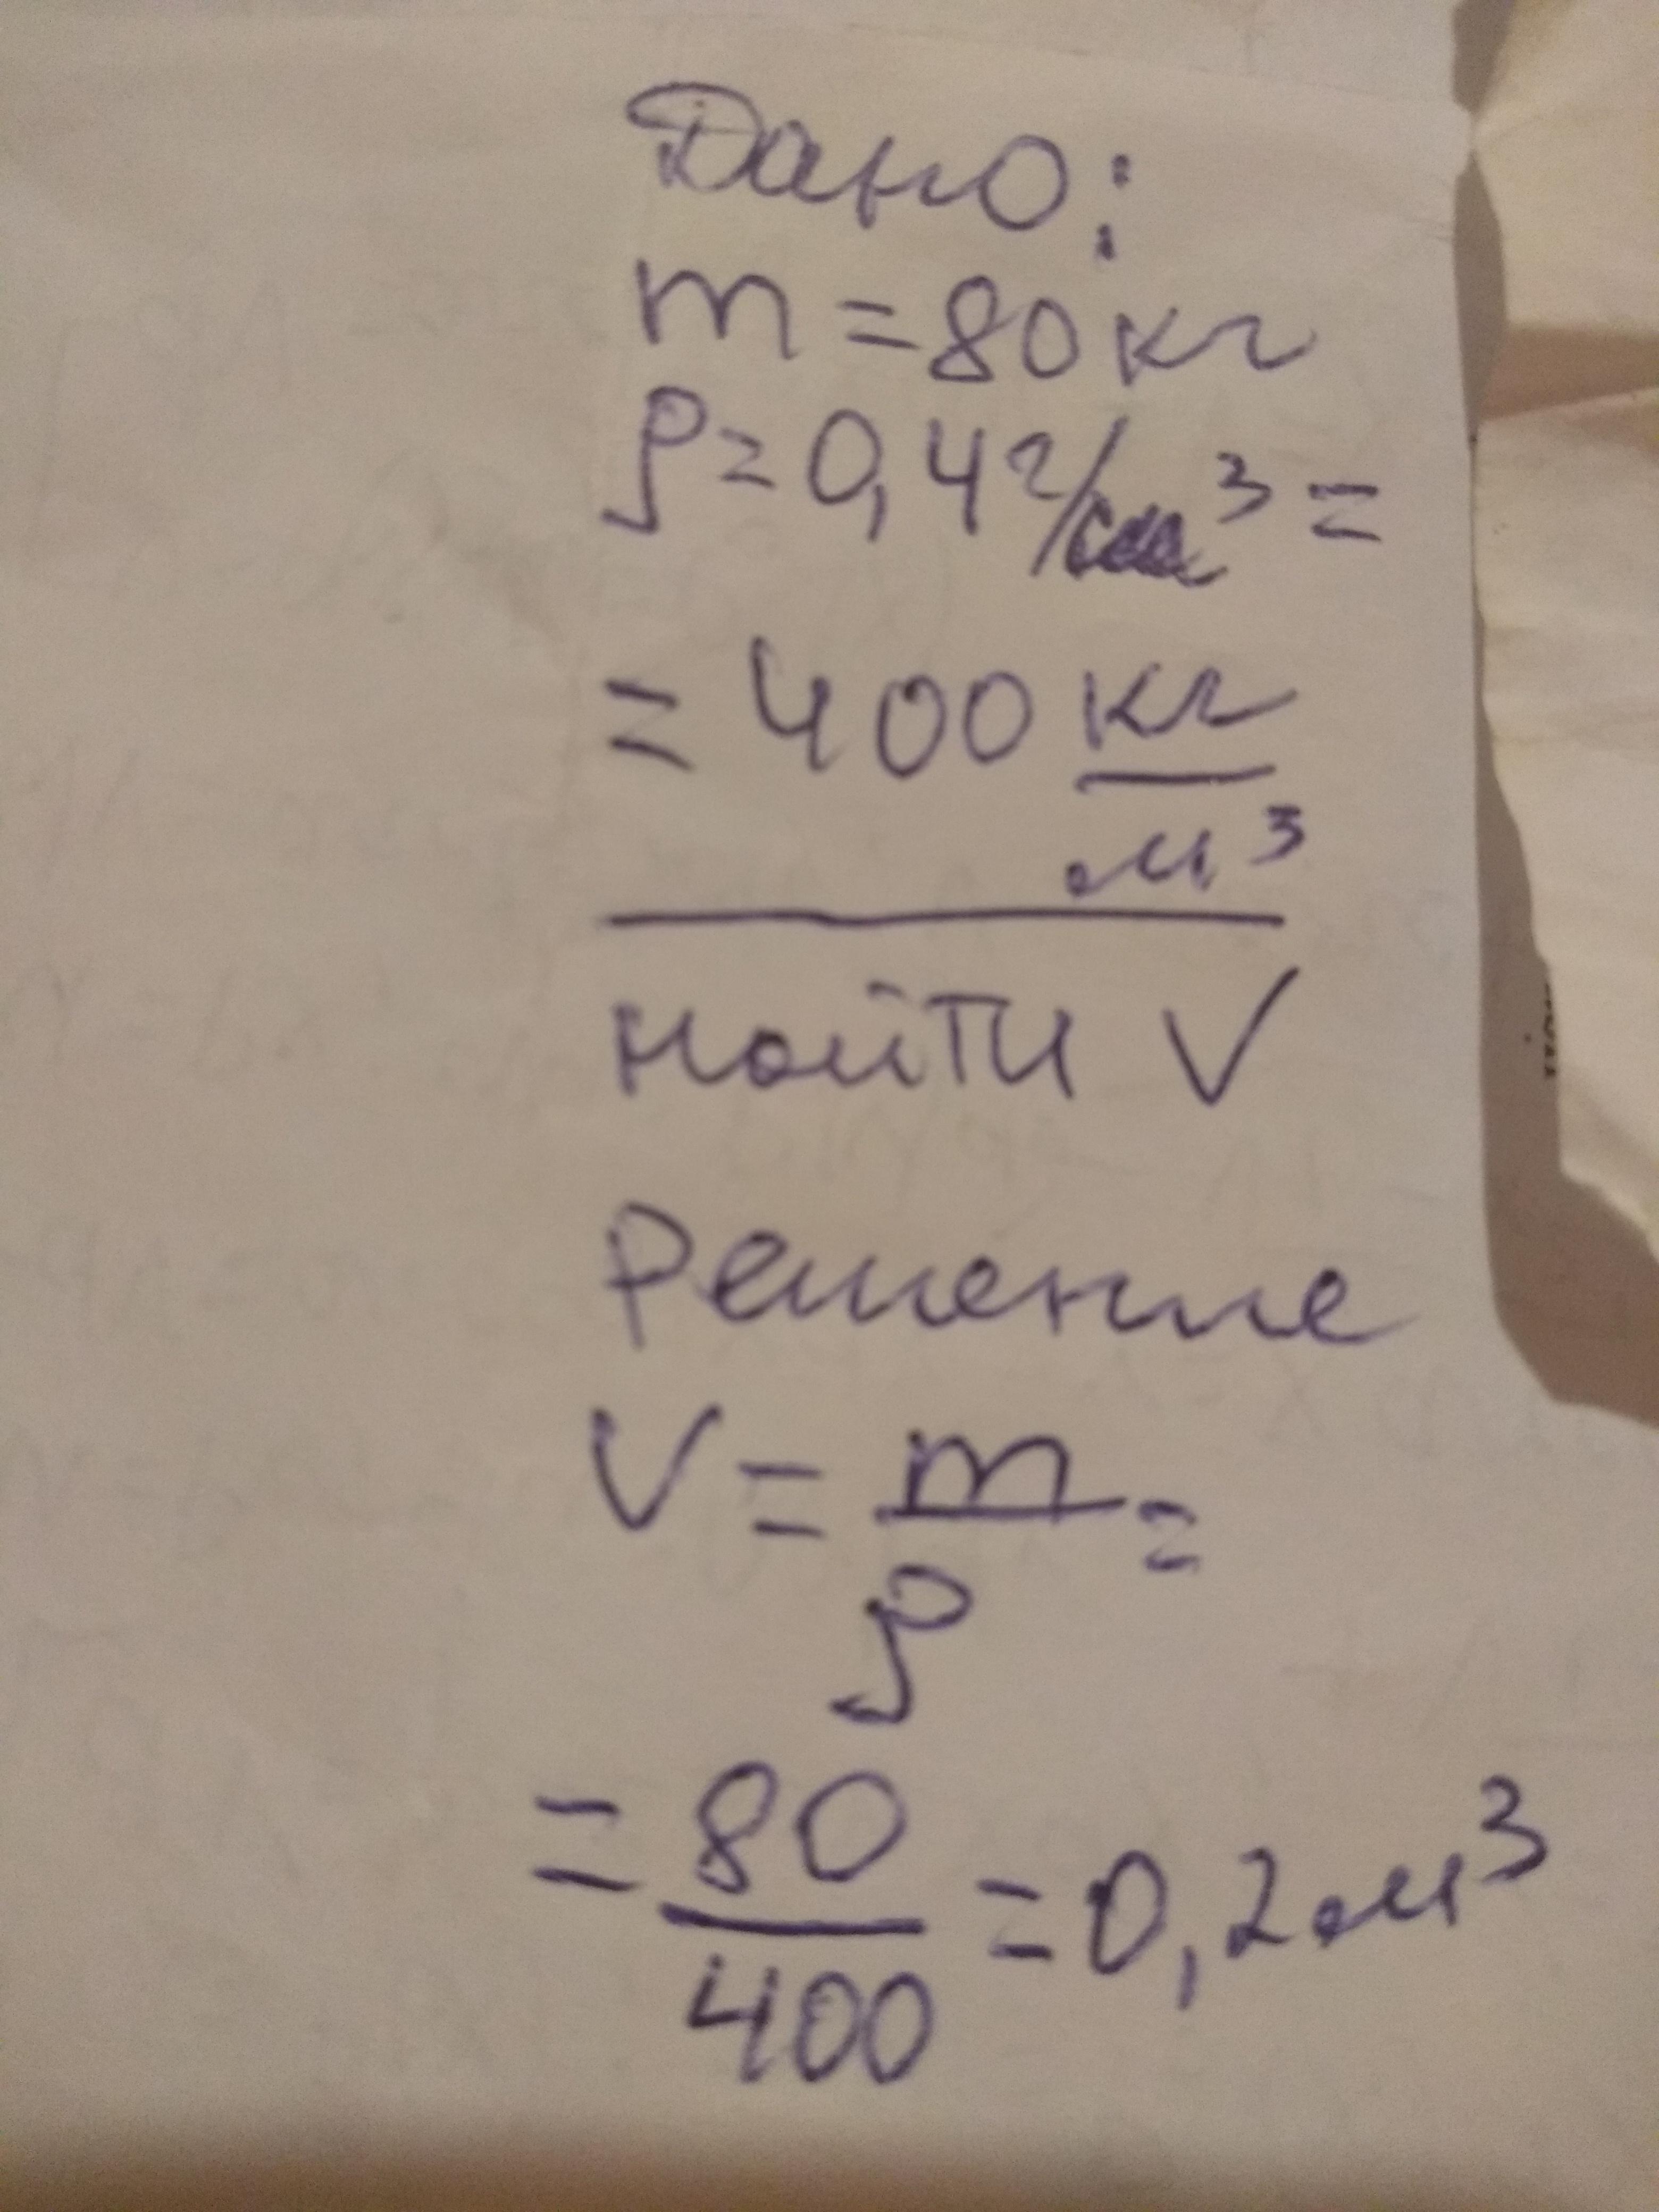 Дано:
m = 80 кг
ρ = 0,4 г/см³ =
= 400 кг
м³
найти V
Решение
V = m =
ρ
= 80
400
= 0,2 м³